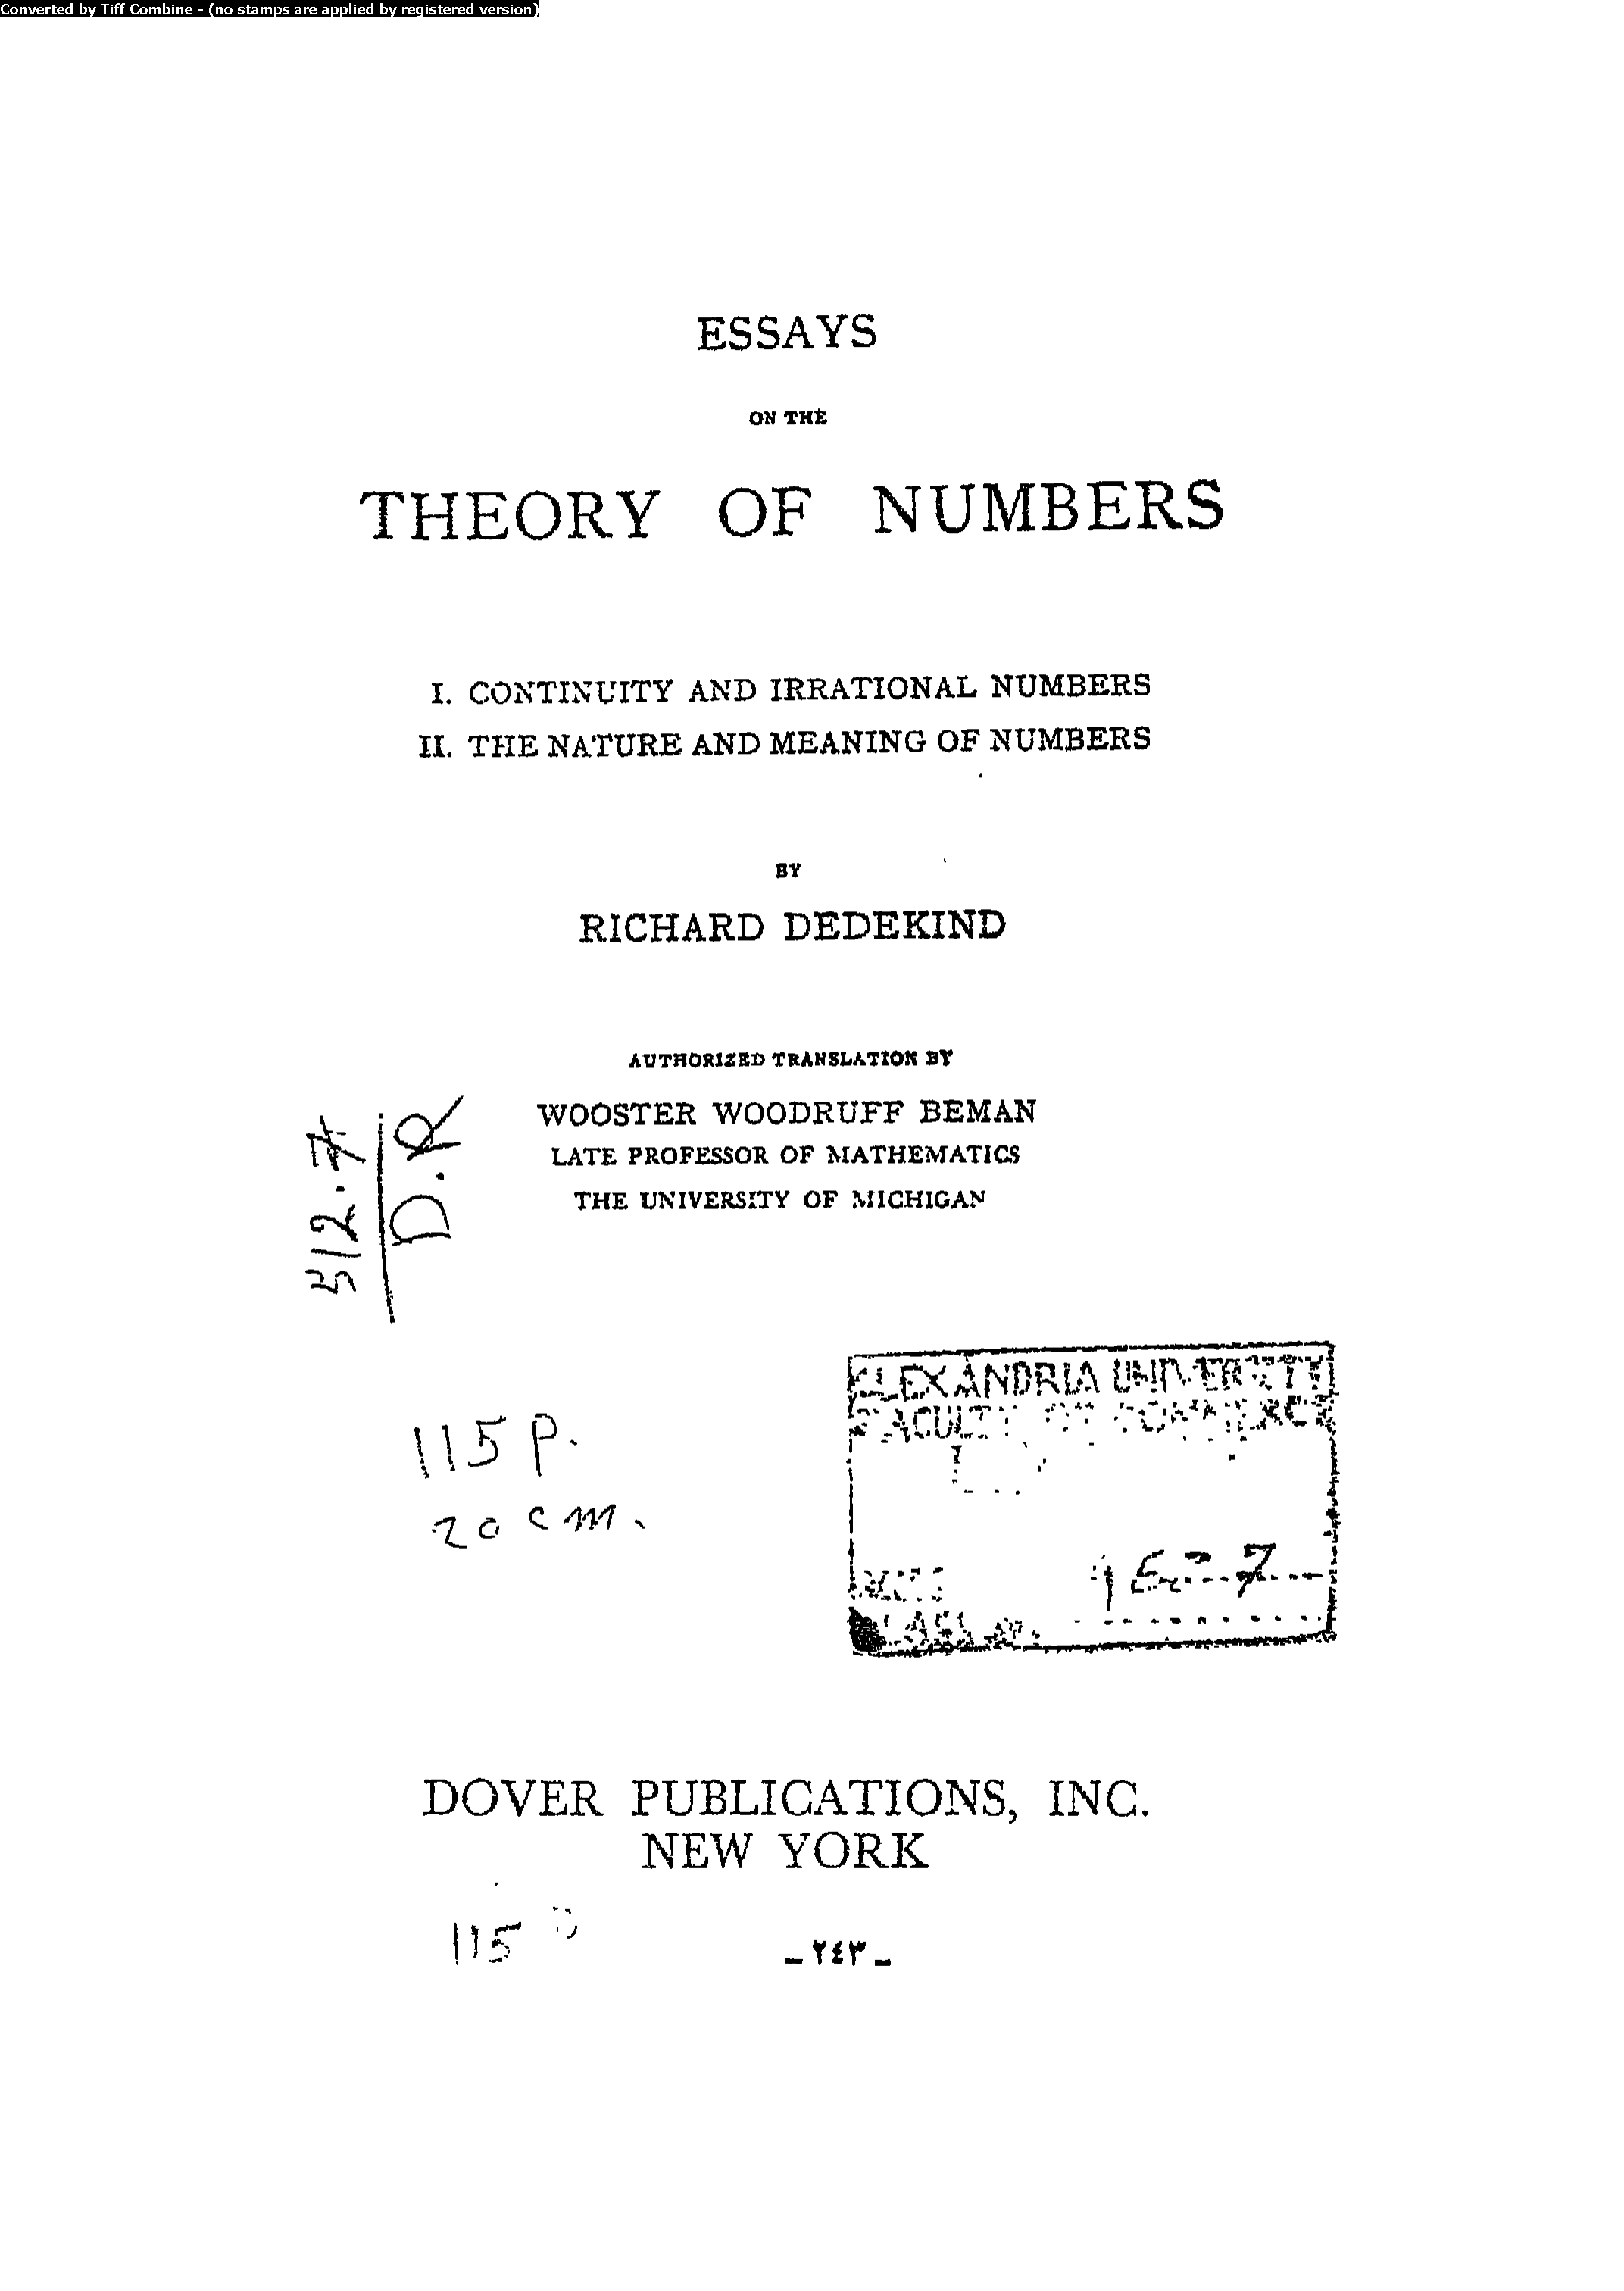 Converted by Tiff Combine - (no stamps are applied by registered version)
ESSAYS
ON THE
THEORY OF NUMBERS
I. CONTINUITY AND IRRATIONAL NUMBERS
II. THE NATURE AND MEANING OF NUMBERS
BY
RICHARD DEDEKIND
AUTHORIZED TRANSLATION BY
WOOSTER WOODRUFF BEMAN
LATE PROFESSOR OF MATHEMATICS
THE UNIVERSITY OF MICHIGAN
512.7
D.R
115 p.
20 cm.
ALEXANDRIA UNIVERSITY
FACULTY OF COMMERCE
DOVER PUBLICATIONS, INC.
NEW YORK
115
- ٢٤٣ -